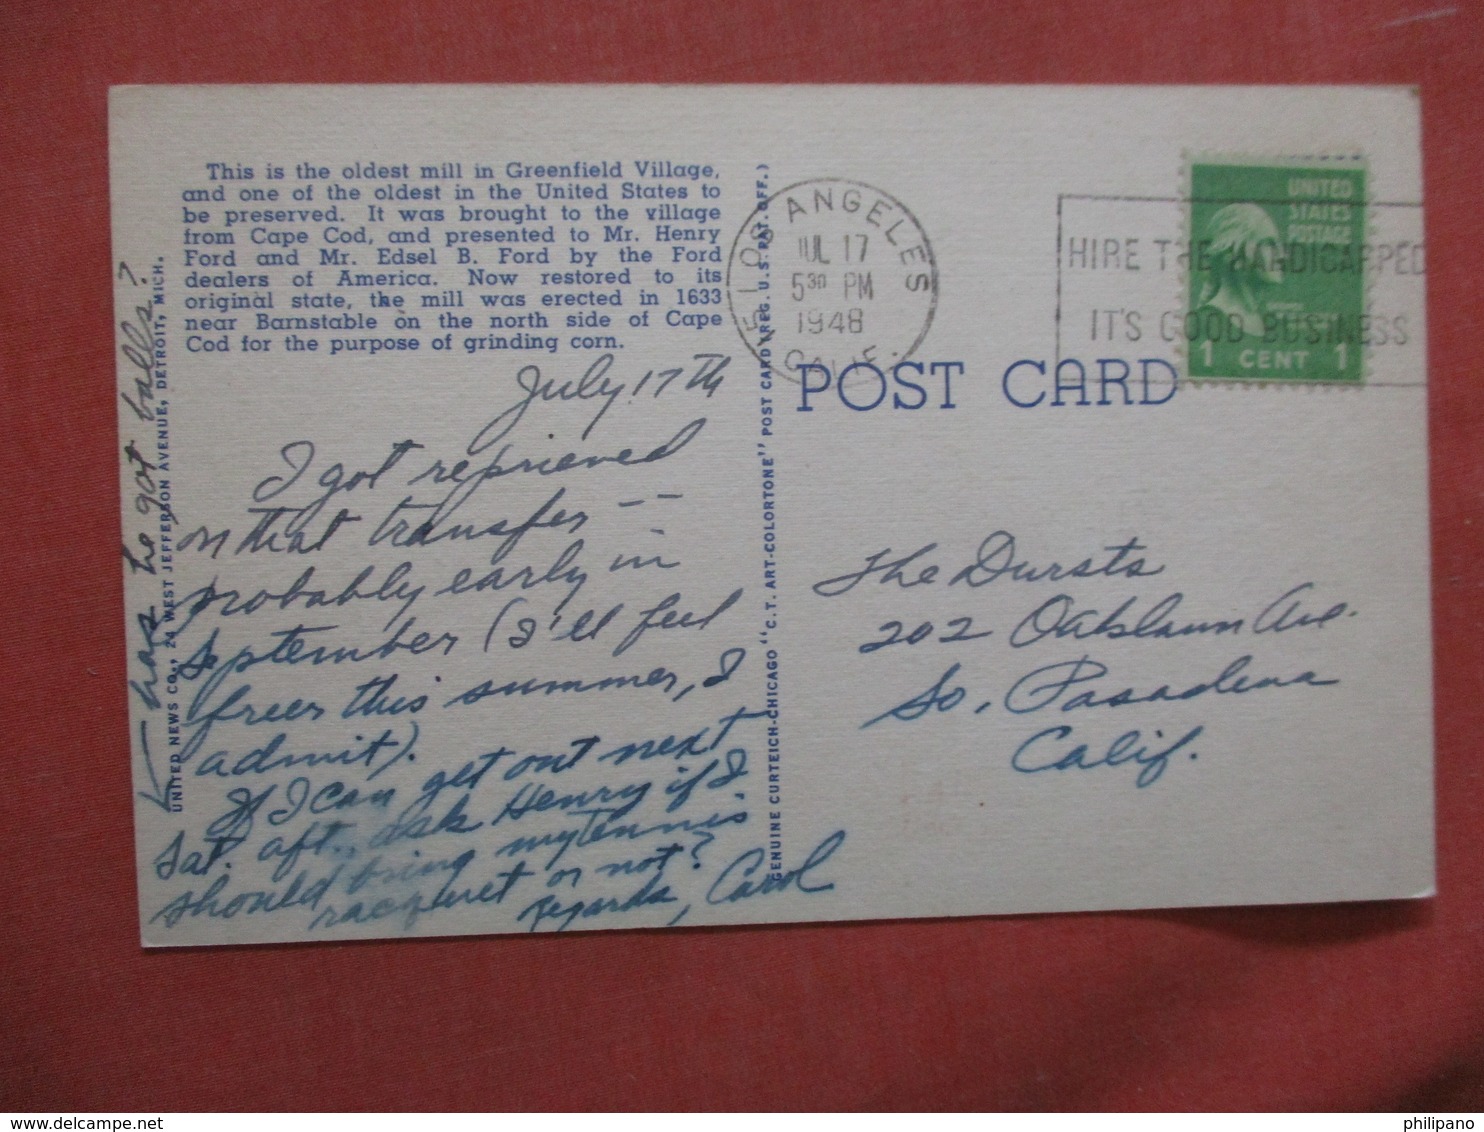 This is the oldest mill in Greenfield Village,
and one of the oldest in the United States to
be preserved. It was brought to the village
from Cape Cod, and presented to Mr. Henry
Ford and Mr. Edsel B. Ford by the Ford
dealers of America. Now restored to its
original state, the mill was erected in 1633
near Barnstable on the north side of Cape
Cod for the purpose of grinding corn.
July 17th
I got reprieved
on that transfer --
probably early in
September (I'll feel
freer this summer, I
admit).
If I can get out next
Sat. aft., ask Henry if I
should bring my tennis
racquet or not?
Regards, Carol
has he got balls?
UNITED NEWS CO., 24 WEST JEFFERSON AVENUE, DETROIT, MICH.
GENUINE CURTEICH-CHICAGO "C.T. ART-COLORTONE" POST CARD (REG. U.S. PAT. OFF.)
LOS ANGELES
5
JUL 17
5 30 PM
1948
CALIF.
HIRE THE HANDICAPPED
IT'S GOOD BUSINESS
UNITED
STATES
POSTAGE
1 CENT 1
POST CARD
The Dursts
202 Oaklawn Ave.
So. Pasadena
Calif.
philipano
delcampe.net